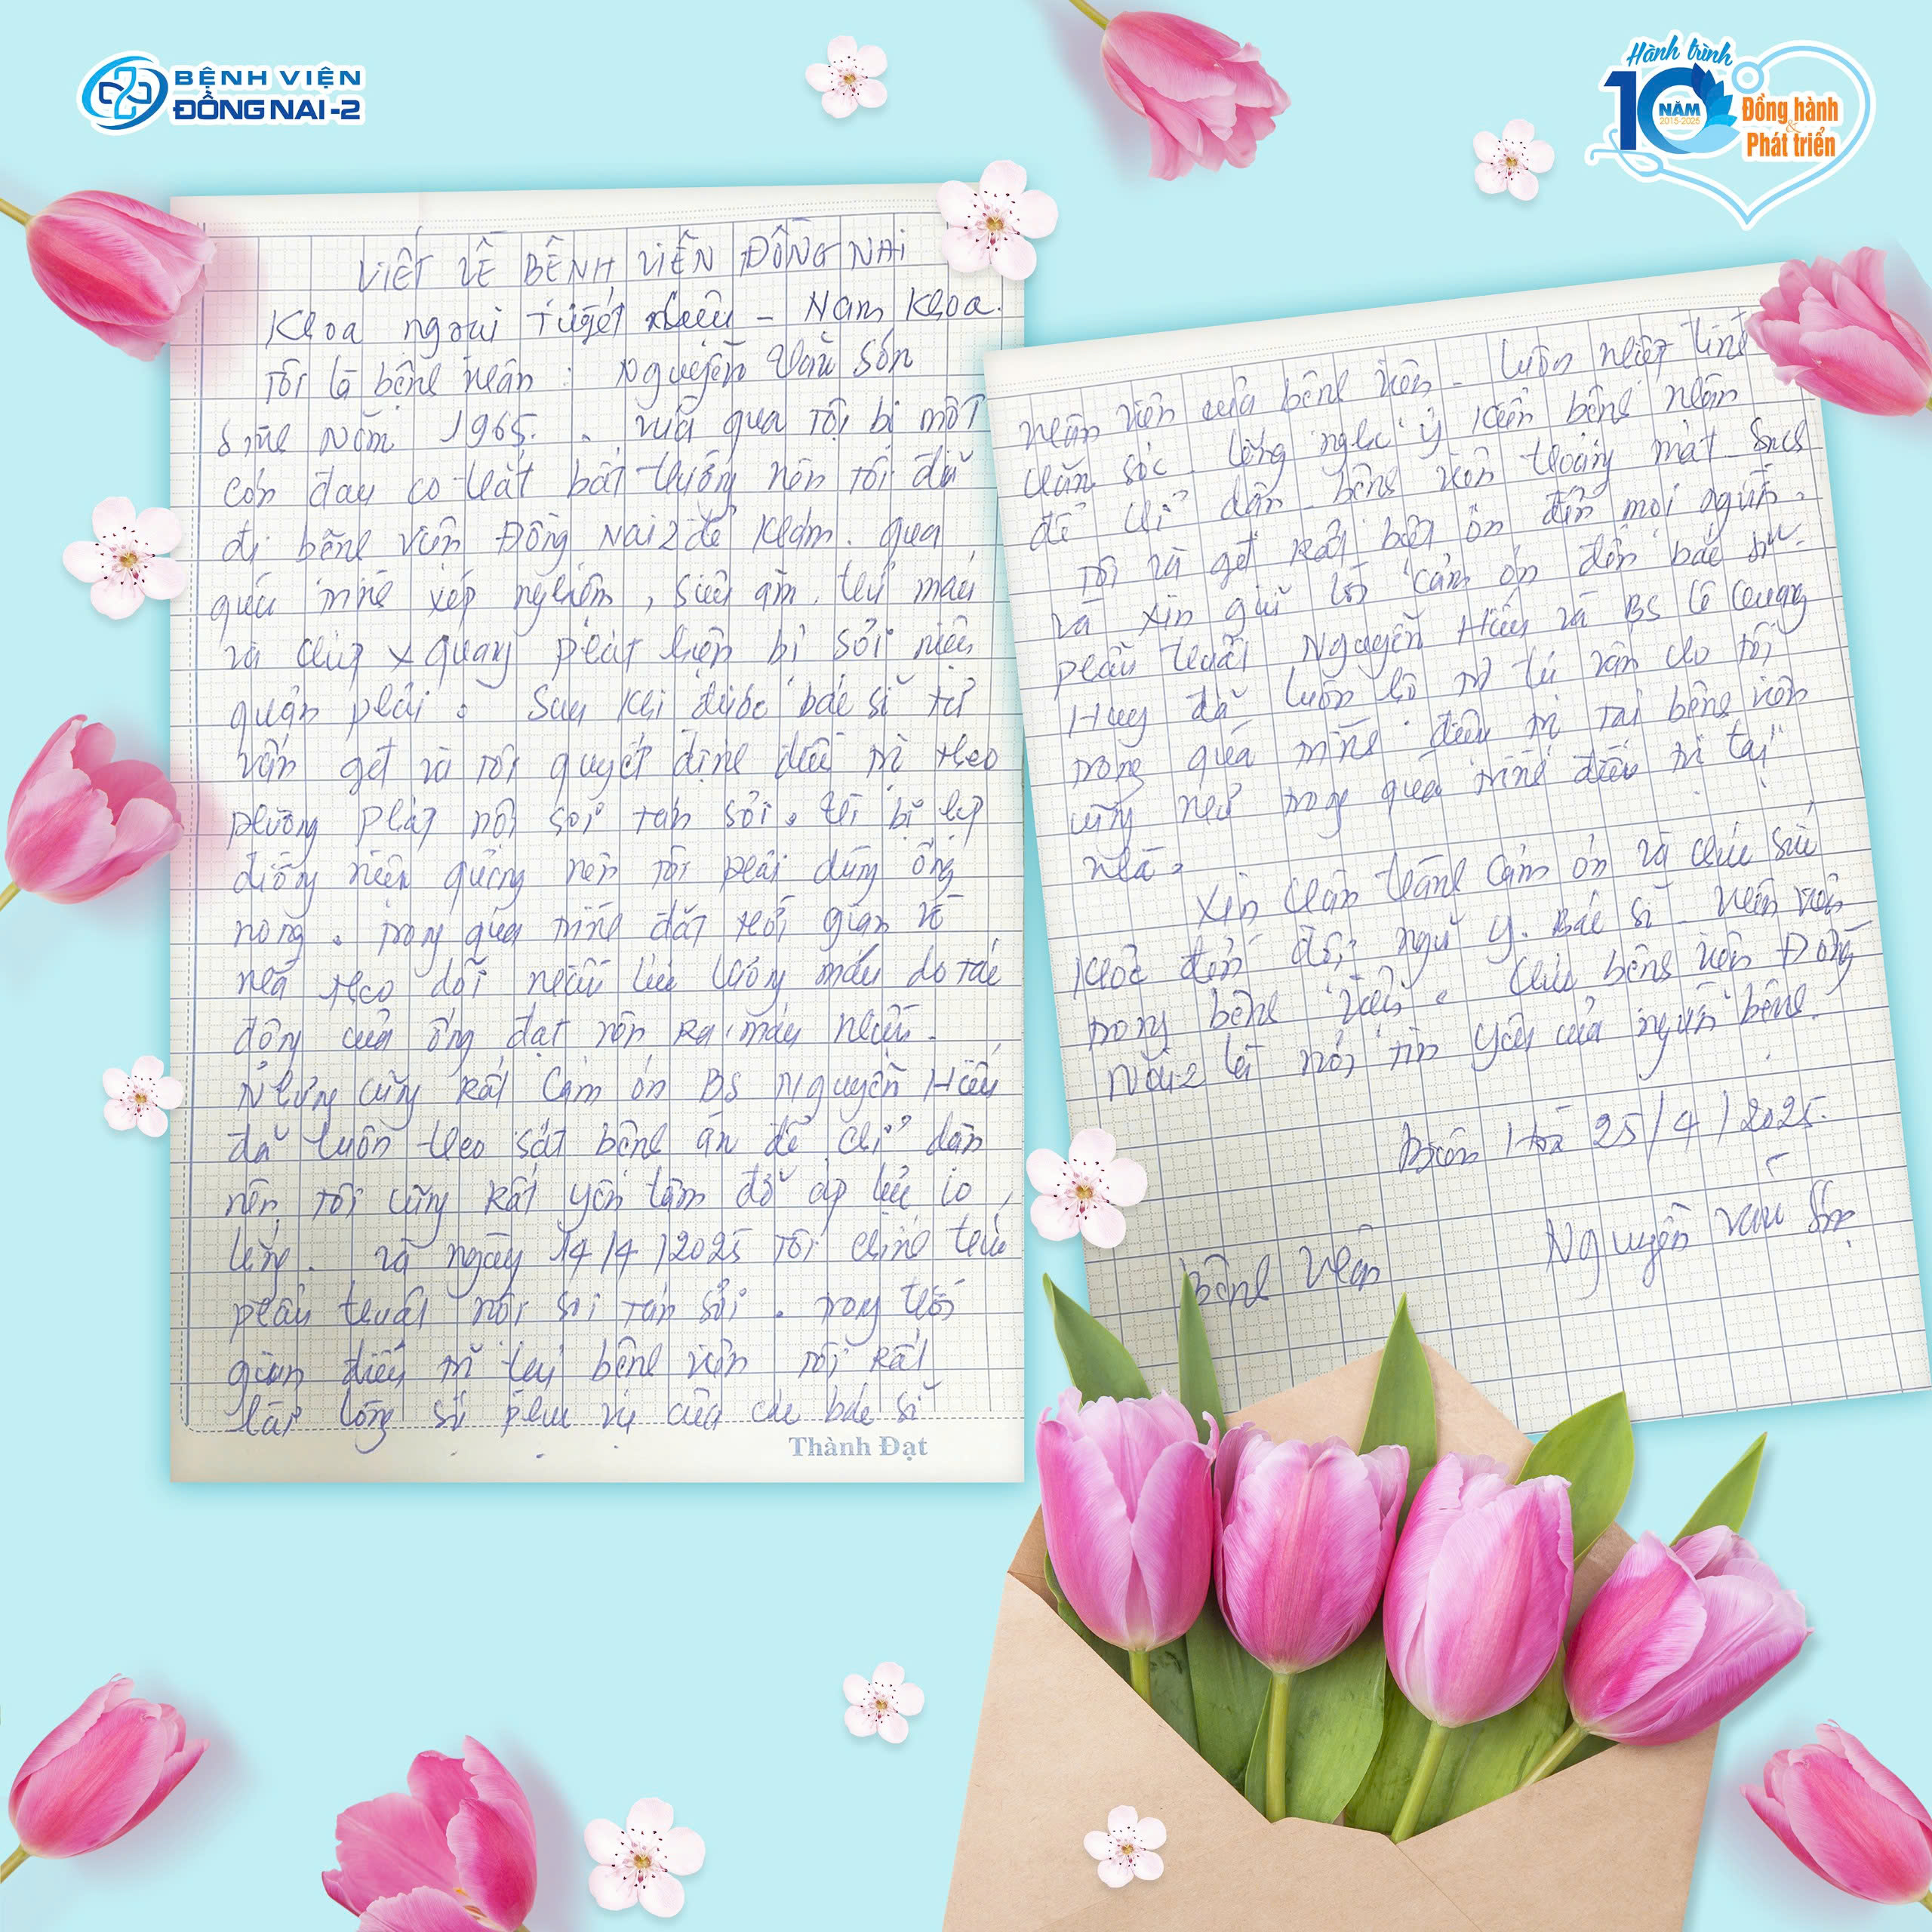 BỆNH VIỆN
ĐỒNG NAI -2
Hành trình
10 NĂM
2015-2025
Đồng hành
&
Phát triển
VIẾT VỀ BỆNH VIỆN ĐỒNG NAI
Khoa ngoại Tiết niệu - Nam Khoa.
Tôi là bệnh nhân : Nguyễn Văn Sơn
Sinh Năm 1965. Vừa qua tôi bị một
cơn đau co thắt bất thường nên tôi đã
đi bệnh viện Đồng Nai 2 để khám. qua
quá trình xép nghiệm, siêu âm, thử máu
và chụp x quang phát hiện bị sỏi niệu
quản phải. Sau khi được bác sĩ tư
vấn và tôi quyết định điều trị theo
phương pháp nội soi tán sỏi. Vì bị hẹp
đường niệu quảng nên tôi phải dùng ống
nong. trong quá trình đặt thời gian về
nhà theo dõi nhiều lưu lượng máu do tác
động của ống đạt nên ra máu nhiều.
Nhưng cũng rất cảm ơn BS Nguyễn Hữu
đã luôn theo sát bệnh án để chỉ dẫn
nên tôi cũng rất yên tâm đở áp lực lo
lắng. và ngày 14/4/2025 tôi chính thức
phẩu thuật nội soi tán sỏi. trong thời
gian điều trị tại bệnh viện tôi rất
hài lòng sự phục vụ của các bác sĩ
Thành Đạt
nhân viên của bệnh viện - luôn nhiệt tình
chăm sóc lắng nghe ý kiến bệnh nhân
để chỉ dẫn bệnh viện thoáng mát sạch
Tôi và rất biết ơn đến mọi người.
Và xin gửi lời cảm ơn đến bác sĩ
phẩu thuật Nguyễn Hữu và BS Lê Quang
Huy đã luôn tư vấn cho tôi
trong quá trình điều trị tại bệnh viện
cũng như trong quá trình điều trị tại
nhà.
Xin chân thành cảm ơn và chúc sức
khoẻ đến đội ngũ y. Bác sĩ - nhân viên
trong bệnh viện. Chúc bệnh viện Đồng
Nai-2 là nơi tin yêu của người bệnh.
Biên Hoà 25/4/2025.
Bệnh nhân
Nguyễn Văn Sơn